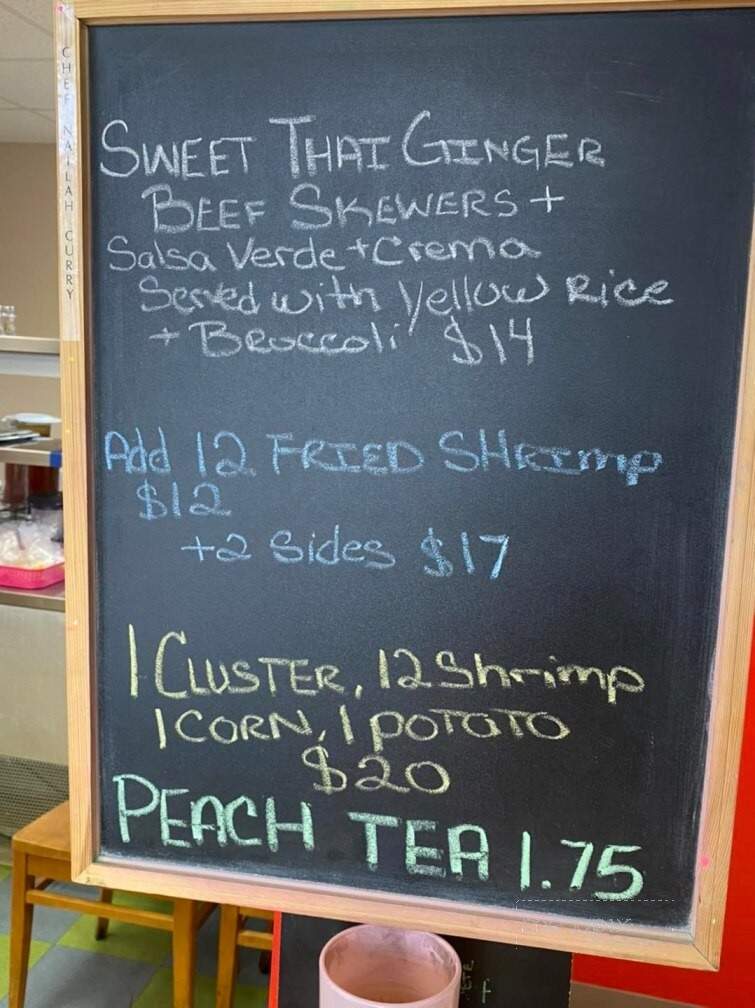 CHEF NALLAH CURRY
SWEET THAI GINGER
BEEF SKEWERS +
Salsa Verde + Crema
Served with Yellow Rice
+ Broccoli $14
Add 12 FRIED SHRImp
$12
+2 Sides $17
1 CLUSTER, 12 Shrimp
1 CORN, 1 POTATO
$20
PEACH TEA 1.75